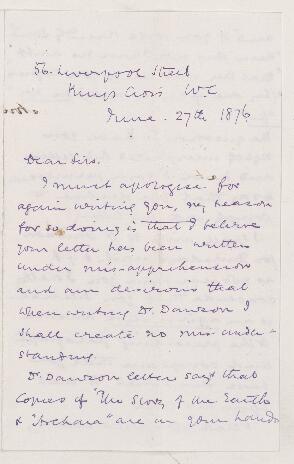 56. Liverpool Street
Kings Cross W.C
June. 27th 1876
Dear Sirs.
I must apologise for
again writing you, my reason
for so doing is that I believe
your letter has been written
under mis-apprehension
and am desirous that
when writing Dr. Dawson I
shall create no mis-under-
standing.
Dr. Dawson letter says that
Copies of "The Story of the Earth
& "Archaia" are in your hands